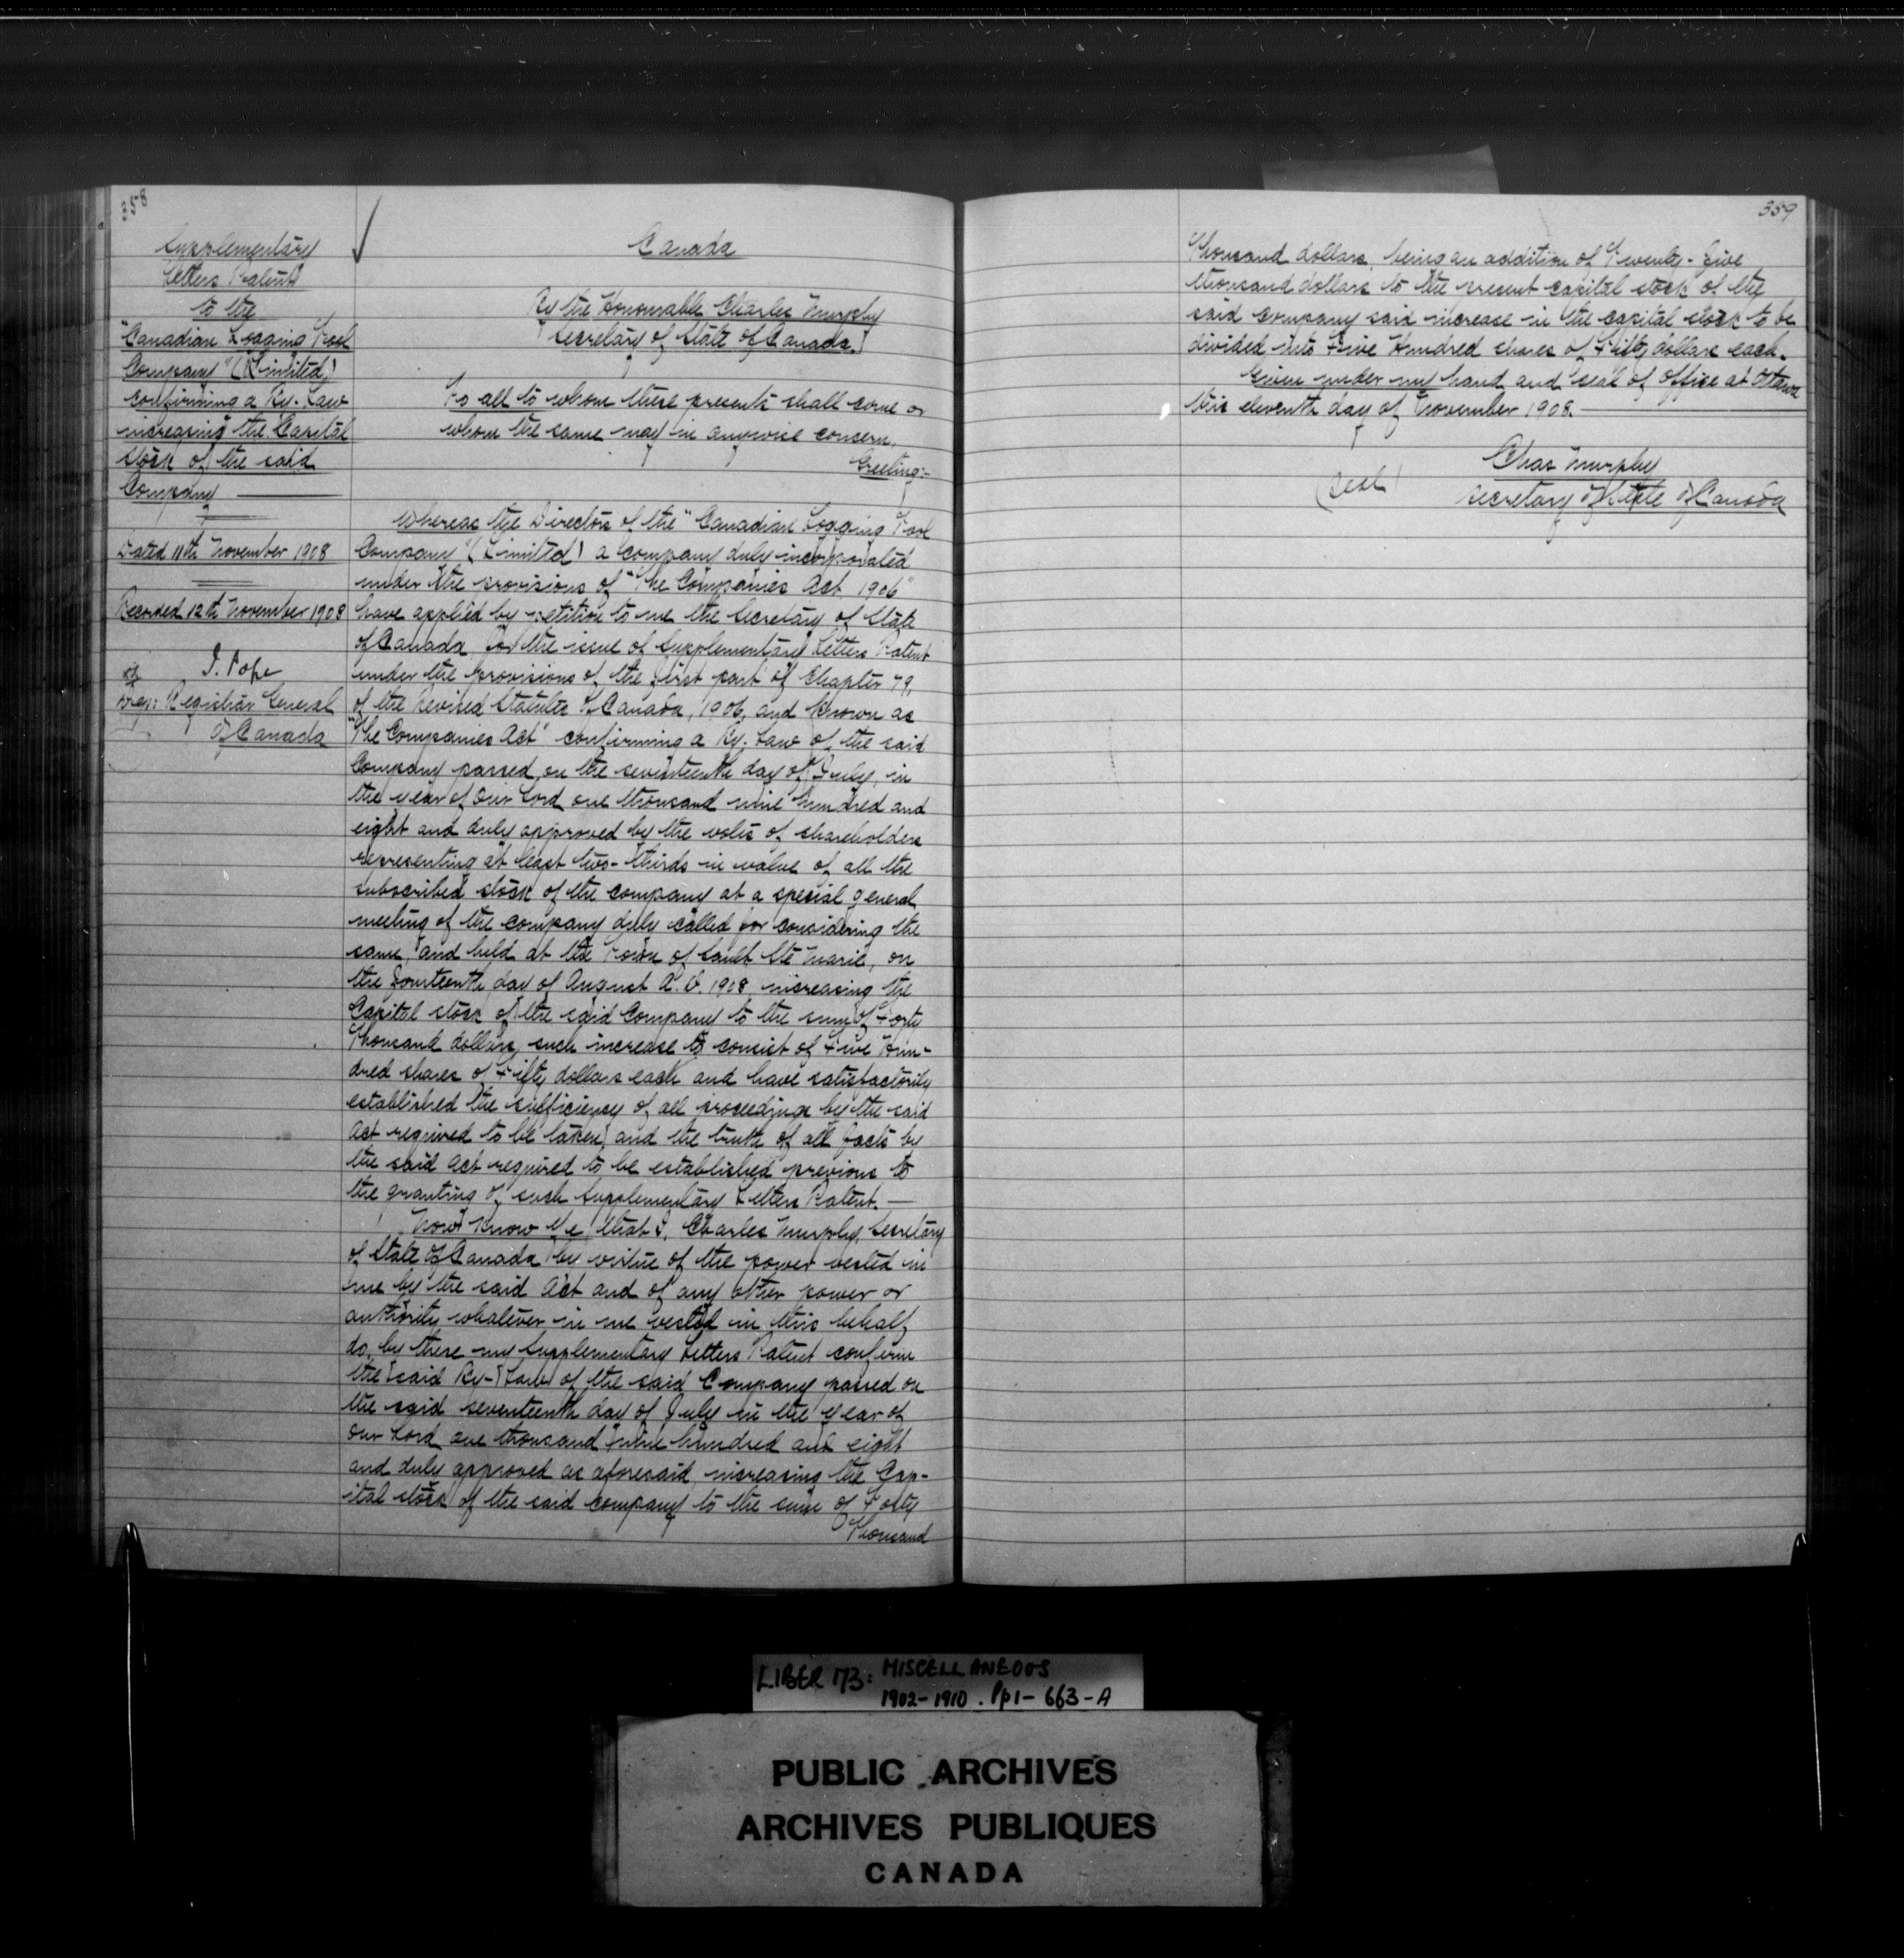 358
Supplementary
Letters Patent
to the
"Canadian Logging Tool
Company" (Limited)
confirming a By-Law
increasing the Capital
stock of the said
Company
Dated 11th November 1908
Recorded 12th November 1908
J. Pope
Dep: Registrar General
of Canada
Canada
By the Honourable Charles Murphy
Secretary of State of Canada.
To all to whom these presents shall come or
whom the same may in anywise concern,
Greeting:-
Whereas the Directors of the "Canadian Logging Tool
Company" (Limited) a company duly incorporated
under the provisions of "The Companies Act 1906"
have applied by petition to me the Secretary of State
of Canada for the issue of Supplementary Letters Patent
under the provisions of the first part of Chapter 79,
of the Revised Statutes of Canada, 1906, and known as
"The Companies Act" confirming a By-Law of the said
Company passed on the seventeenth day of July, in
the year of Our Lord one thousand nine hundred and
eight and duly approved by the votes of shareholders
representing at least two-thirds in value of all the
subscribed stock of the company at a special general
meeting of the company duly called for considering the
same, and held at the Town of Sault Ste Marie, on
the fourteenth day of August A.D. 1908, increasing the
Capital stock of the said Company to the sum of Forty
Thousand dollars, such increase to consist of Five Hun-
dred shares of Fifty dollars each and have satisfactorily
established the sufficiency of all proceedings by the said
Act required to be taken, and the truth of all facts by
the said Act required to be established previous to
the granting of such Supplementary Letters Patent.—
Now Know Ye, that I, Charles Murphy, Secretary
of State of Canada by virtue of the power vested in
me by the said Act and of any other power or
authority whatever in me vested in this behalf
do, by these my Supplementary Letters Patent confirm
the said By-Law of the said Company passed on
the said seventeenth day of July in the year of
Our Lord one thousand nine hundred and eight
and duly approved as aforesaid, increasing the Cap-
ital stock of the said company to the sum of Forty
Thousand
359
Thousand dollars, being an addition of Twenty-Five
thousand dollars to the present capital stock of the
said Company said increase in the capital stock to be
divided into Five Hundred shares of Fifty dollars each.
Given under my hand and seal of office at Ottawa
this eleventh day of November 1908.
Chas Murphy
(seal) Secretary of State of Canada
LIBER 173: MISCELLANEOUS
1902-1910. Pp1-663-A
PUBLIC ARCHIVES
ARCHIVES PUBLIQUES
CANADA